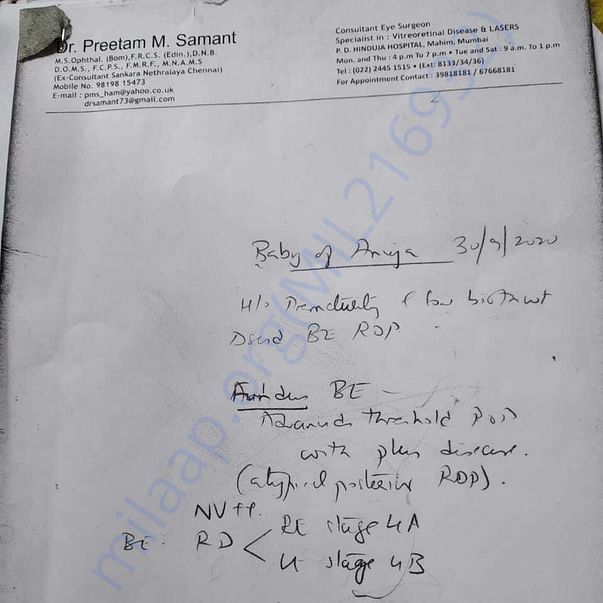 Dr. Preetam M. Samant
M.S.Ophthal. (Bom),F.R.C.S. (Edin.),D.N.B.
D.O.M.S., F.C.P.S., F.M.R.F., M.N.A.M.S
(Ex-Consultant Sankara Nethralaya Chennai)
Mobile No. 98198 15473
E-mail : pms_ham@yahoo.co.uk
drsamant73@gmail.com
Consultant Eye Surgeon
Specialist in : Vitreoretinal Disease & LASERS
P. D. HINDUJA HOSPITAL, Mahim, Mumbai
Mon. and Thu : 4 p.m To 7 p.m • Tue and Sat : 9 a.m. To 1 p.m
Tel : (022) 2445 1515 • (Ext: 8133/34/36)
For Appointment Contact : 39818181 / 67668181
Baby of 30/9/2020
H/o Prematurity & low birth wt
BE ROP
Fundus BE -
Advanced threshold ROP
with plus disease.
(atypical posterior ROP).
NV++.
BE: RD < RE stage 4A
LE stage 4B
milaap.org(MIL216932)